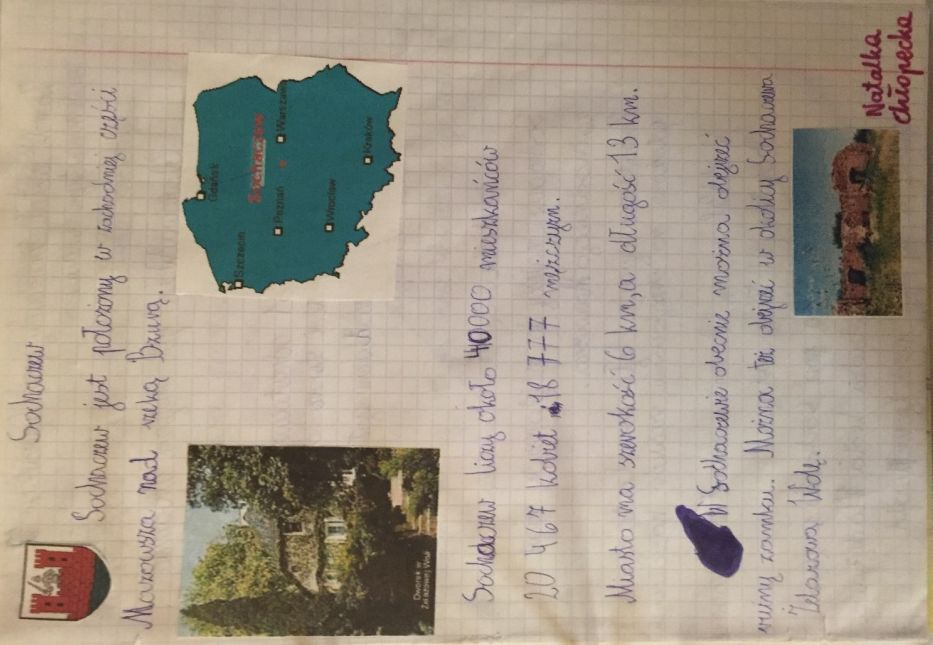 Sochaczew
Sochaczew jest położony w zachodniej części
Mazowsza nad rzeką Bzurą.
Gdańsk
Szczecin
Sochaczew
Warszawa
Poznań
Wrocław
Kraków
Dworek w
Żelazowej Woli
Sochaczew liczy około 40000 mieszkańców
20 467 kobiet i 18 777 mężczyzn.
Miasto ma szerokość 6 km, a długość 13 km.
W Sochaczewie obecnie można obejrzeć
ruiny zamku. Można też obejrzeć w okolicy Sochaczewa
Żelazową Wolę.
Natalka
chłopecka